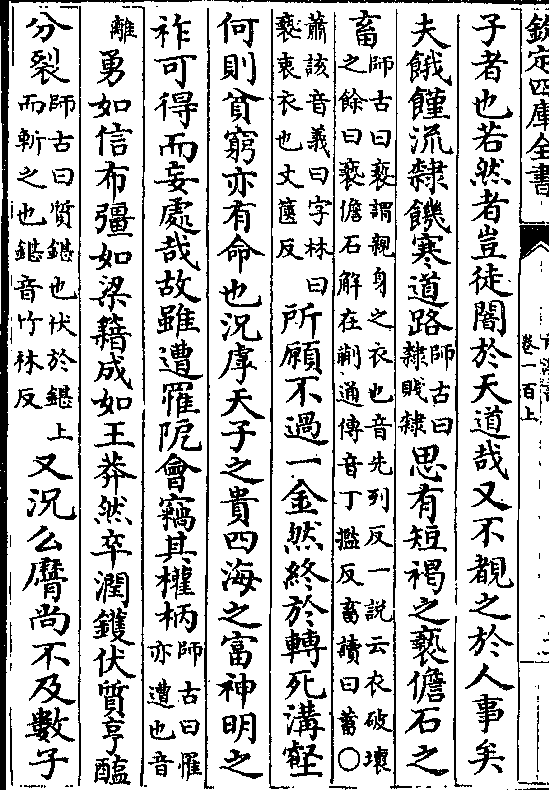 欽定四庫全書
卷一百上
子者也若然者豈徒闇於天道哉又不覩之於人事矣
夫餓饉流隸饑寒道路
師古曰
隸賤隸
思有短褐之褻儋石之
畜
師古曰褻謂親身之衣也音先列反一説云衣破壞
之餘曰褻儋石解在蒯通傳音丁濫反畜讀曰蓄○
蕭該音義曰字林曰
褻衷衣也丈篋反
所願不過一金然終於轉死溝壑
何則貧窮亦有命也況虖天子之貴四海之富神明之
祚可得而妄處哉故雖遭罹阨會竊其權柄
師古曰罹
亦遭也音
離
勇如信布彊如梁籍成如王莽然卒潤鑊伏質亨醢
分裂
師古曰質鍖也伏於鍖上
而斬之也鍖音竹林反
又況么䯢尚不及數子